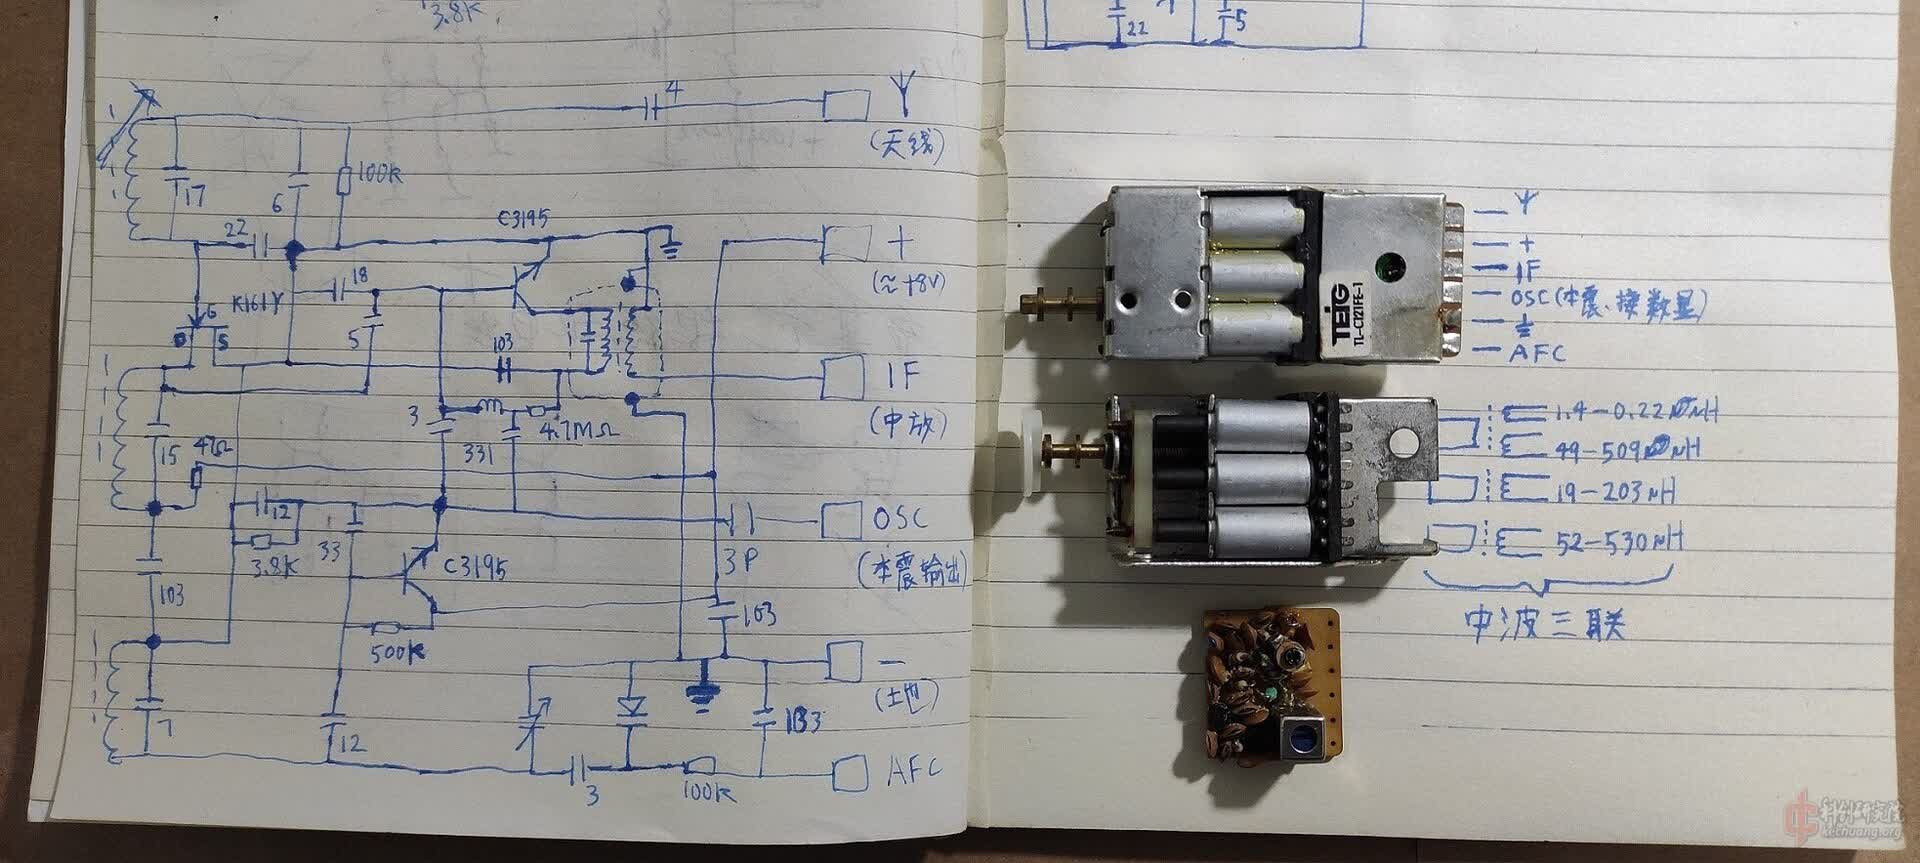 3.8K
22
5
4
(天线)
17
6
100K
22
C3195
+
(≈+8V)
18
K161Y
G
D
S
5
103
IF
(中放)
3
4.7MΩ
331
15
47Ω
12
3.8K
33
C3195
3P
OSC
(本震输出)
103
103
500K
−
(土也)
7
12
3
100K
AFC
+
IF
OSC(本震、接数显)
AFC
TEIG
TL-C121FE-1
1.4-0.22mH
49-509mH
19-203μH
52-530μH
中波三联
科创研究院
kechuang.org